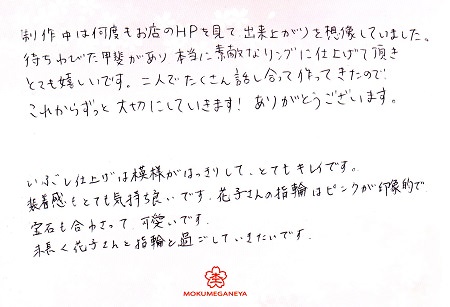 制作中は何度もお店のHPを見て、出来上がりを想像していました。
待ちわびた甲斐があり本当に素敵なリングに仕上げて頂き
とても嬉しいです。二人でたくさん話し合って作ってきたので
これからずっと大切にしていきます！ありがとうございます。
いぶし仕上げは模様がはっきりして、とてもキレイです。
装着感もとても気持ち良いです。花子さんの指輪はピンクが印象的で
宝石も合わさって、可愛いです。
末長く花子さんと指輪と過ごしていきたいです。
MOKUMEGANEYA